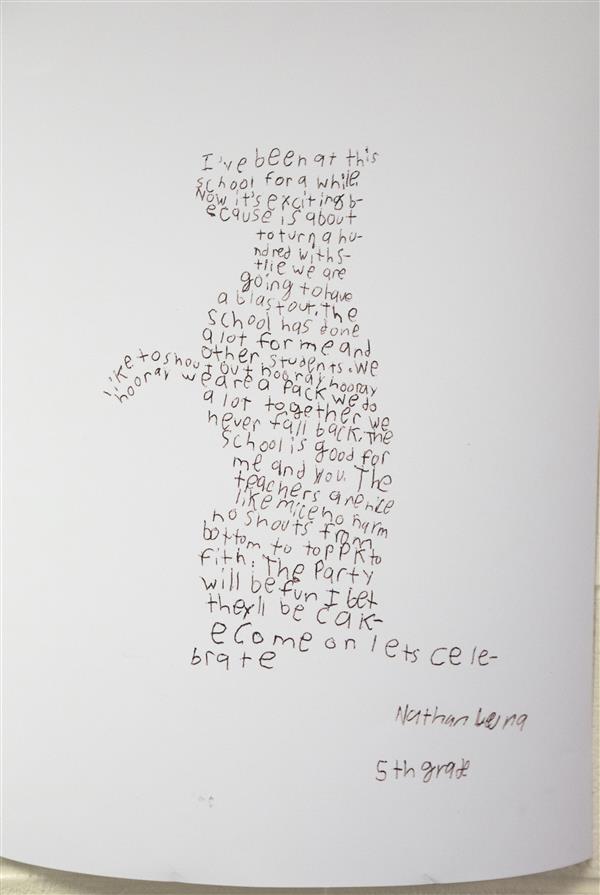 I've been at this
school for a while
Now it's exciting b-
ecause is about
to turn a hu-
ndred with s-
tlie we are
going to have
a blast out. The
school has done
a lot for me and
other students. we
like to shout out hooray hooray
hooray we are a pack we do
a lot together we
never fall back. The
school is good for
me and you. The
teachers are nice
like mice no harm
no shouts from
bottom to top PK to
fith. The Party
will be fun I bet
they'll be cak-
e come on lets cele-
brate
Nathan
5th grade